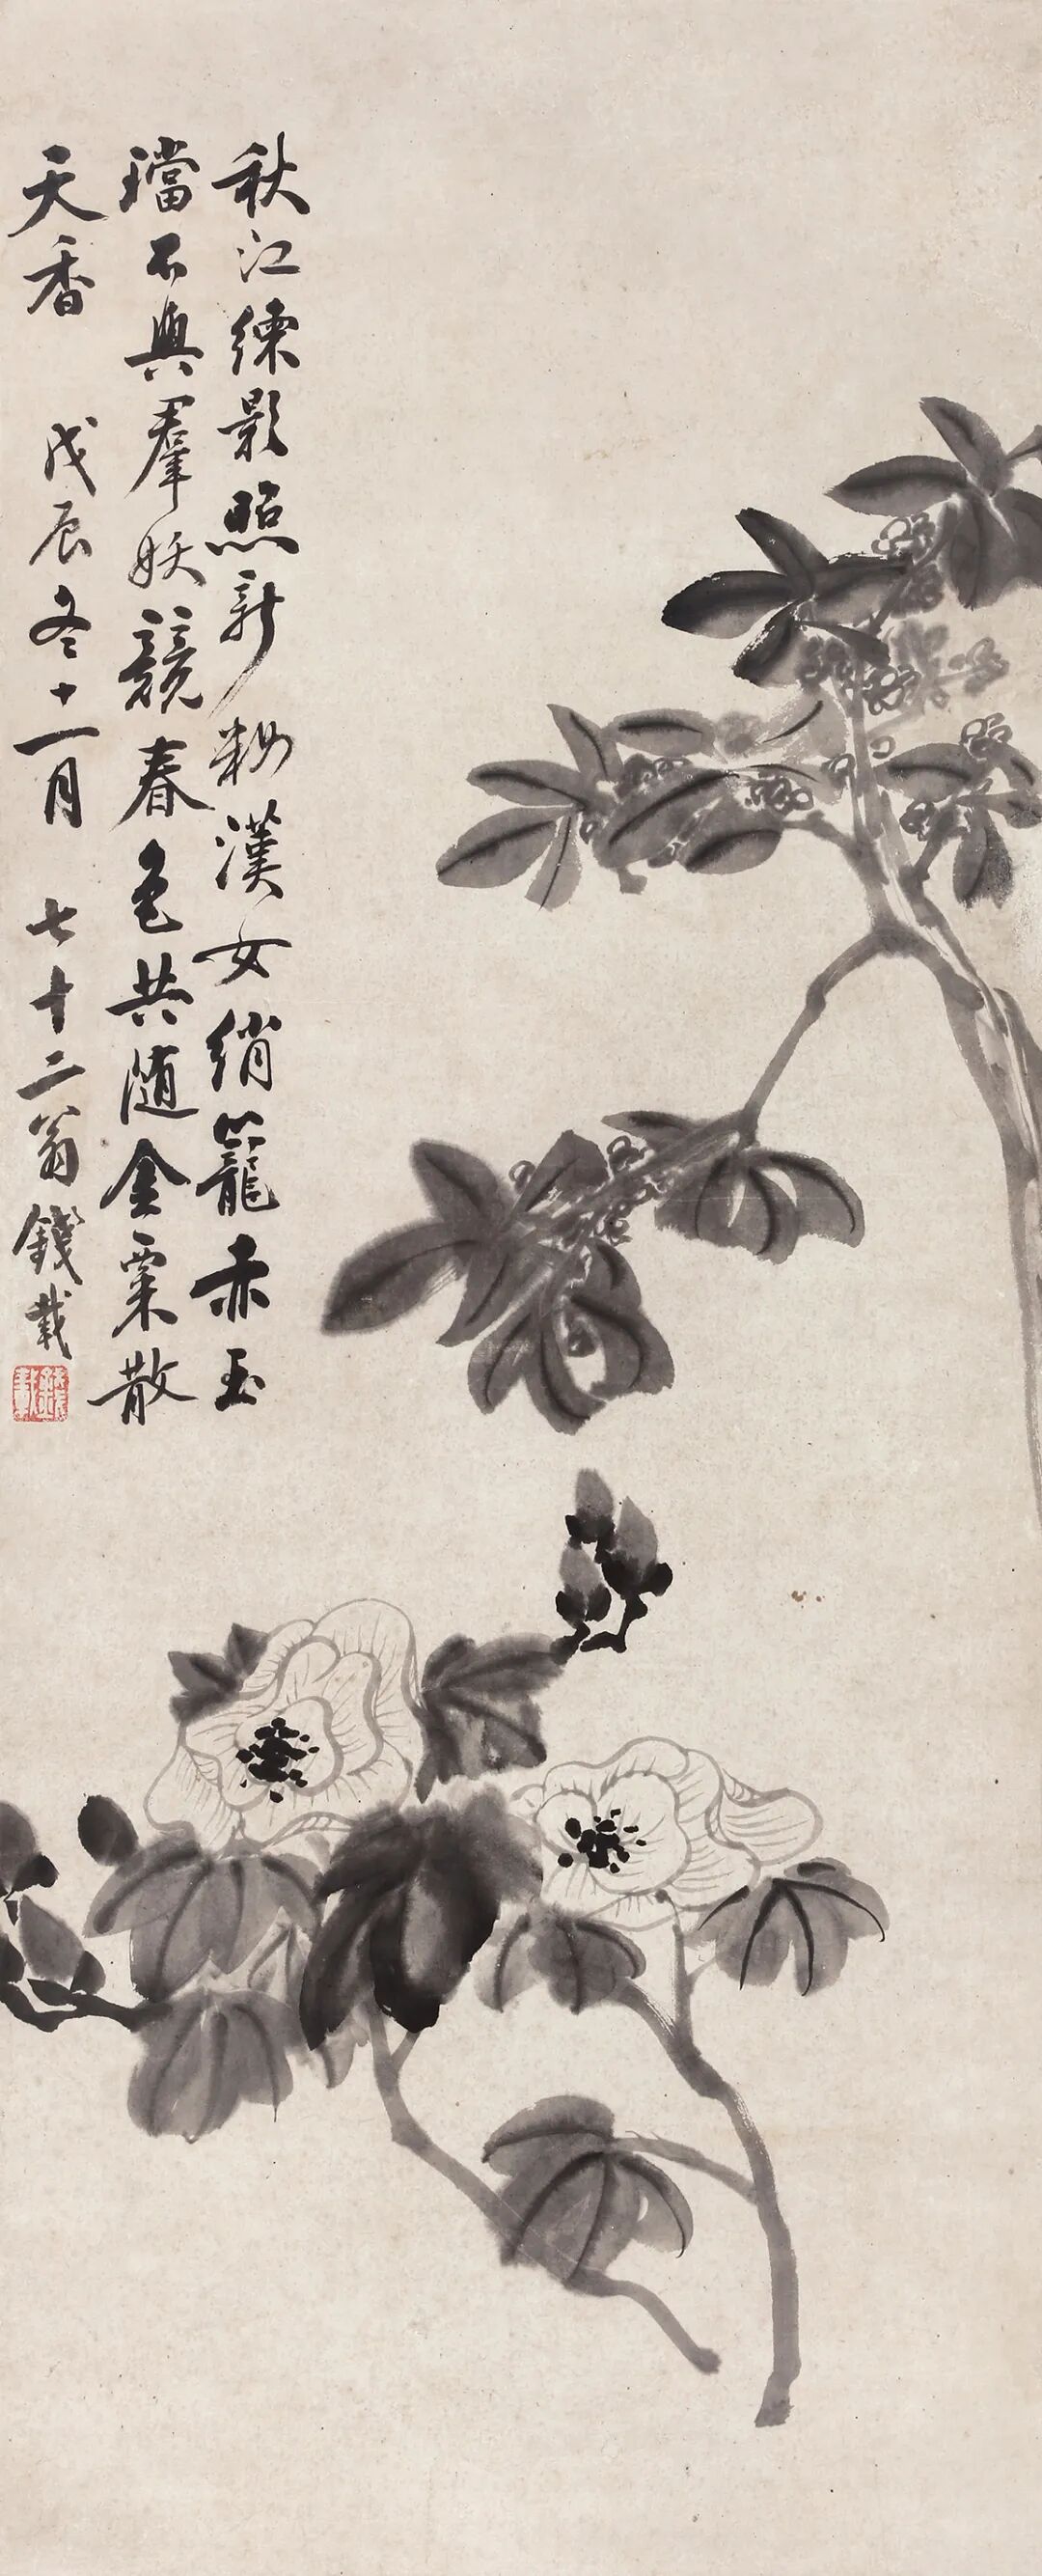 秋江練影照新粧漢女綃籠赤玉
璫不與羣妖競春色共随金粟散
天香　戊辰冬十一月　七十二翁錢載
錢載